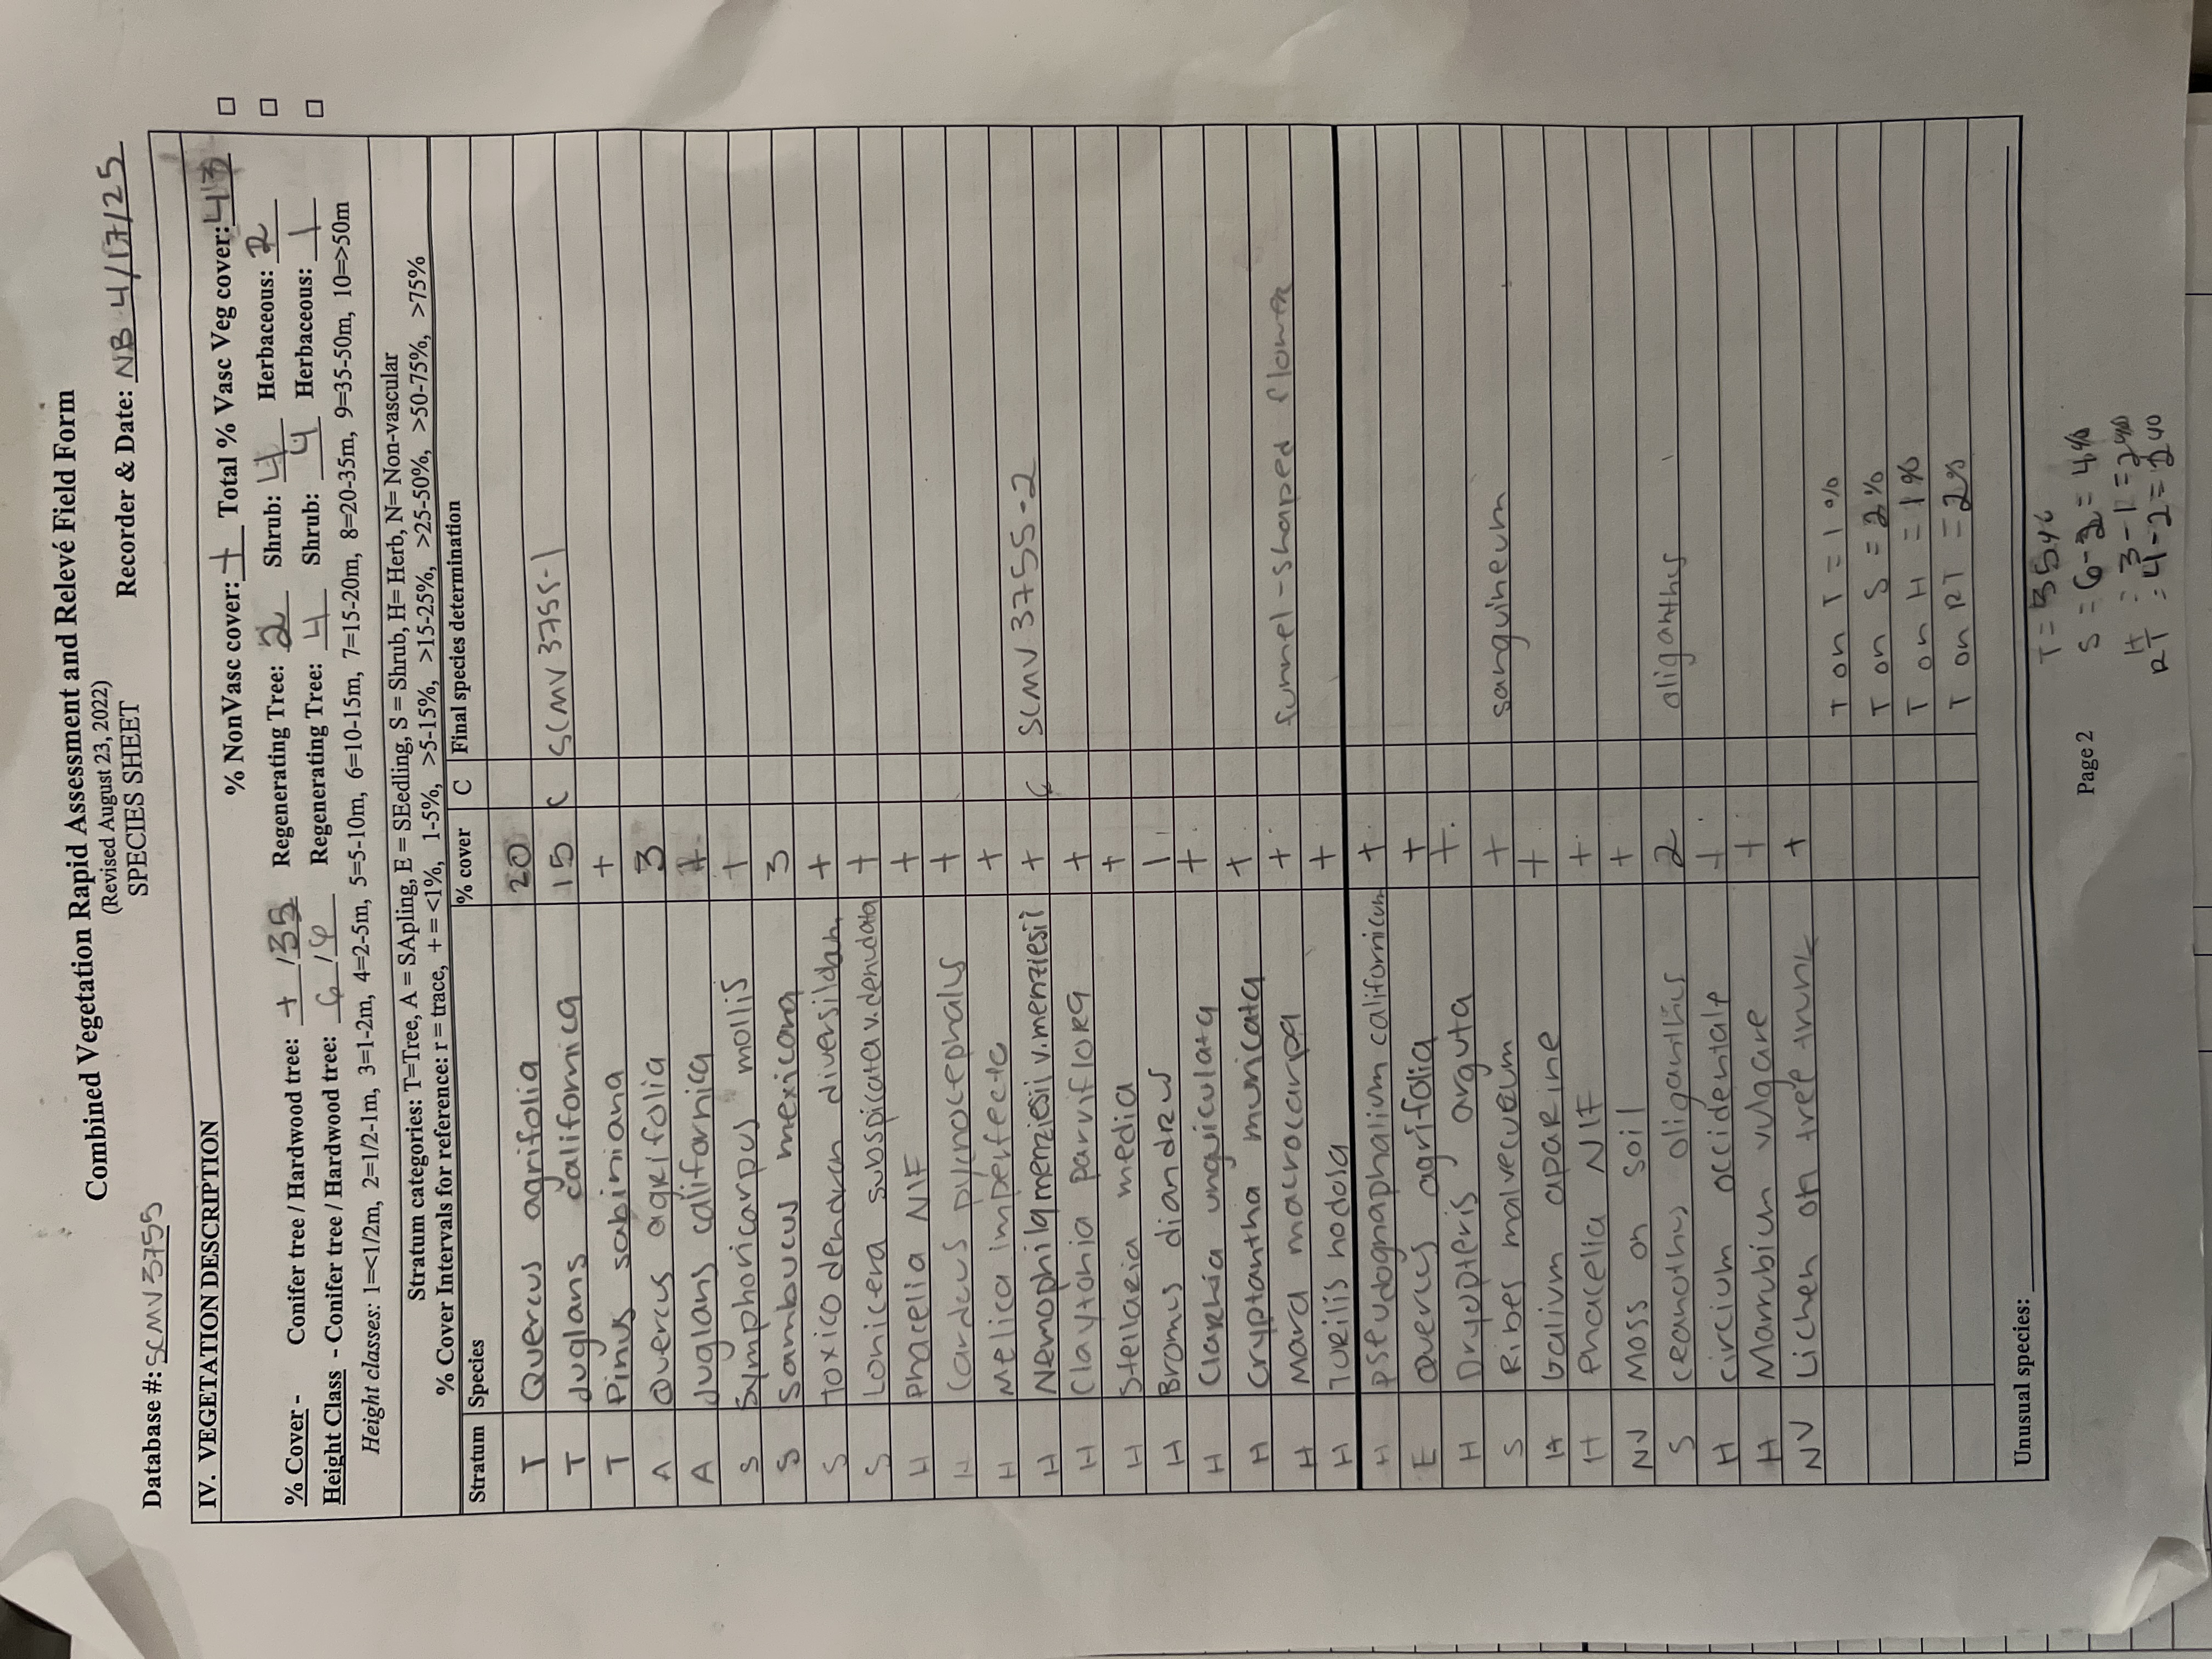 Combined Vegetation Rapid Assessment and Relevé Field Form
(Revised August 23, 2022)
SPECIES SHEET
Database #: SCMV3755 Recorder & Date: NB 4/17/25
IV. VEGETATION DESCRIPTION
% NonVasc cover: + Total % Vasc Veg cover: 43
% Cover - Conifer tree / Hardwood tree: + / 35 Regenerating Tree: 2 Shrub: 4 Herbaceous: 2
Height Class - Conifer tree / Hardwood tree: 6 / 6 Regenerating Tree: 4 Shrub: 4 Herbaceous: 1
Height classes: 1=<1/2m, 2=1/2-1m, 3=1-2m, 4=2-5m, 5=5-10m, 6=10-15m, 7=15-20m, 8=20-35m, 9=35-50m, 10=>50m
Stratum categories: T=Tree, A = SApling, E = SEedling, S = Shrub, H= Herb, N= Non-vascular
% Cover Intervals for reference: r = trace, + = <1%, 1-5%, >5-15%, >15-25%, >25-50%, >50-75%, >75%
Stratum Species % cover C Final species determination
T Quercus agrifolia 20
T Juglans californica 15 C SCMV3755-1
T Pinus sabiniana +
A Quercus agrifolia 3
A Juglans californica +
S Symphoricarpus mollis +
S Sambucus mexicana 3
S Toxicodendron diversilobum +
S Lonicera subspicata v. denudata +
H Phacelia NIF +
H Carduus pycnocephalus +
H Melica imperfecta +
H Nemophila menziesii v. menziesii + C SCMV 3755-2
H Claytonia parviflora +
H Stellaria media +
H Bromus diandrus 1
H Clarkia unguiculata +
H Cryptantha muricata +
H Mara macrocarpa + funnel-shaped flower
H Torilis nodosa +
H Pseudognaphalium californicum +
E Quercus agrifolia +
H Dryopteris arguta +
S Ribes malveceum + sanguineum
H Galium aparine +
H Phacelia NIF +
NV Moss on soil +
S Ceanothus oliganthus 2 oliganthus
H Circium occidentale +
H Marrubium vulgare +
NV Lichen on tree trunk +
T on T = 1%
T on S = 2%
T on H = 1%
T on RT = 2%
Unusual species:
T = 35%
Page 2
S = 6-2 = 4%
H = 3-1 = 2%
RT = 4-2 = 2%